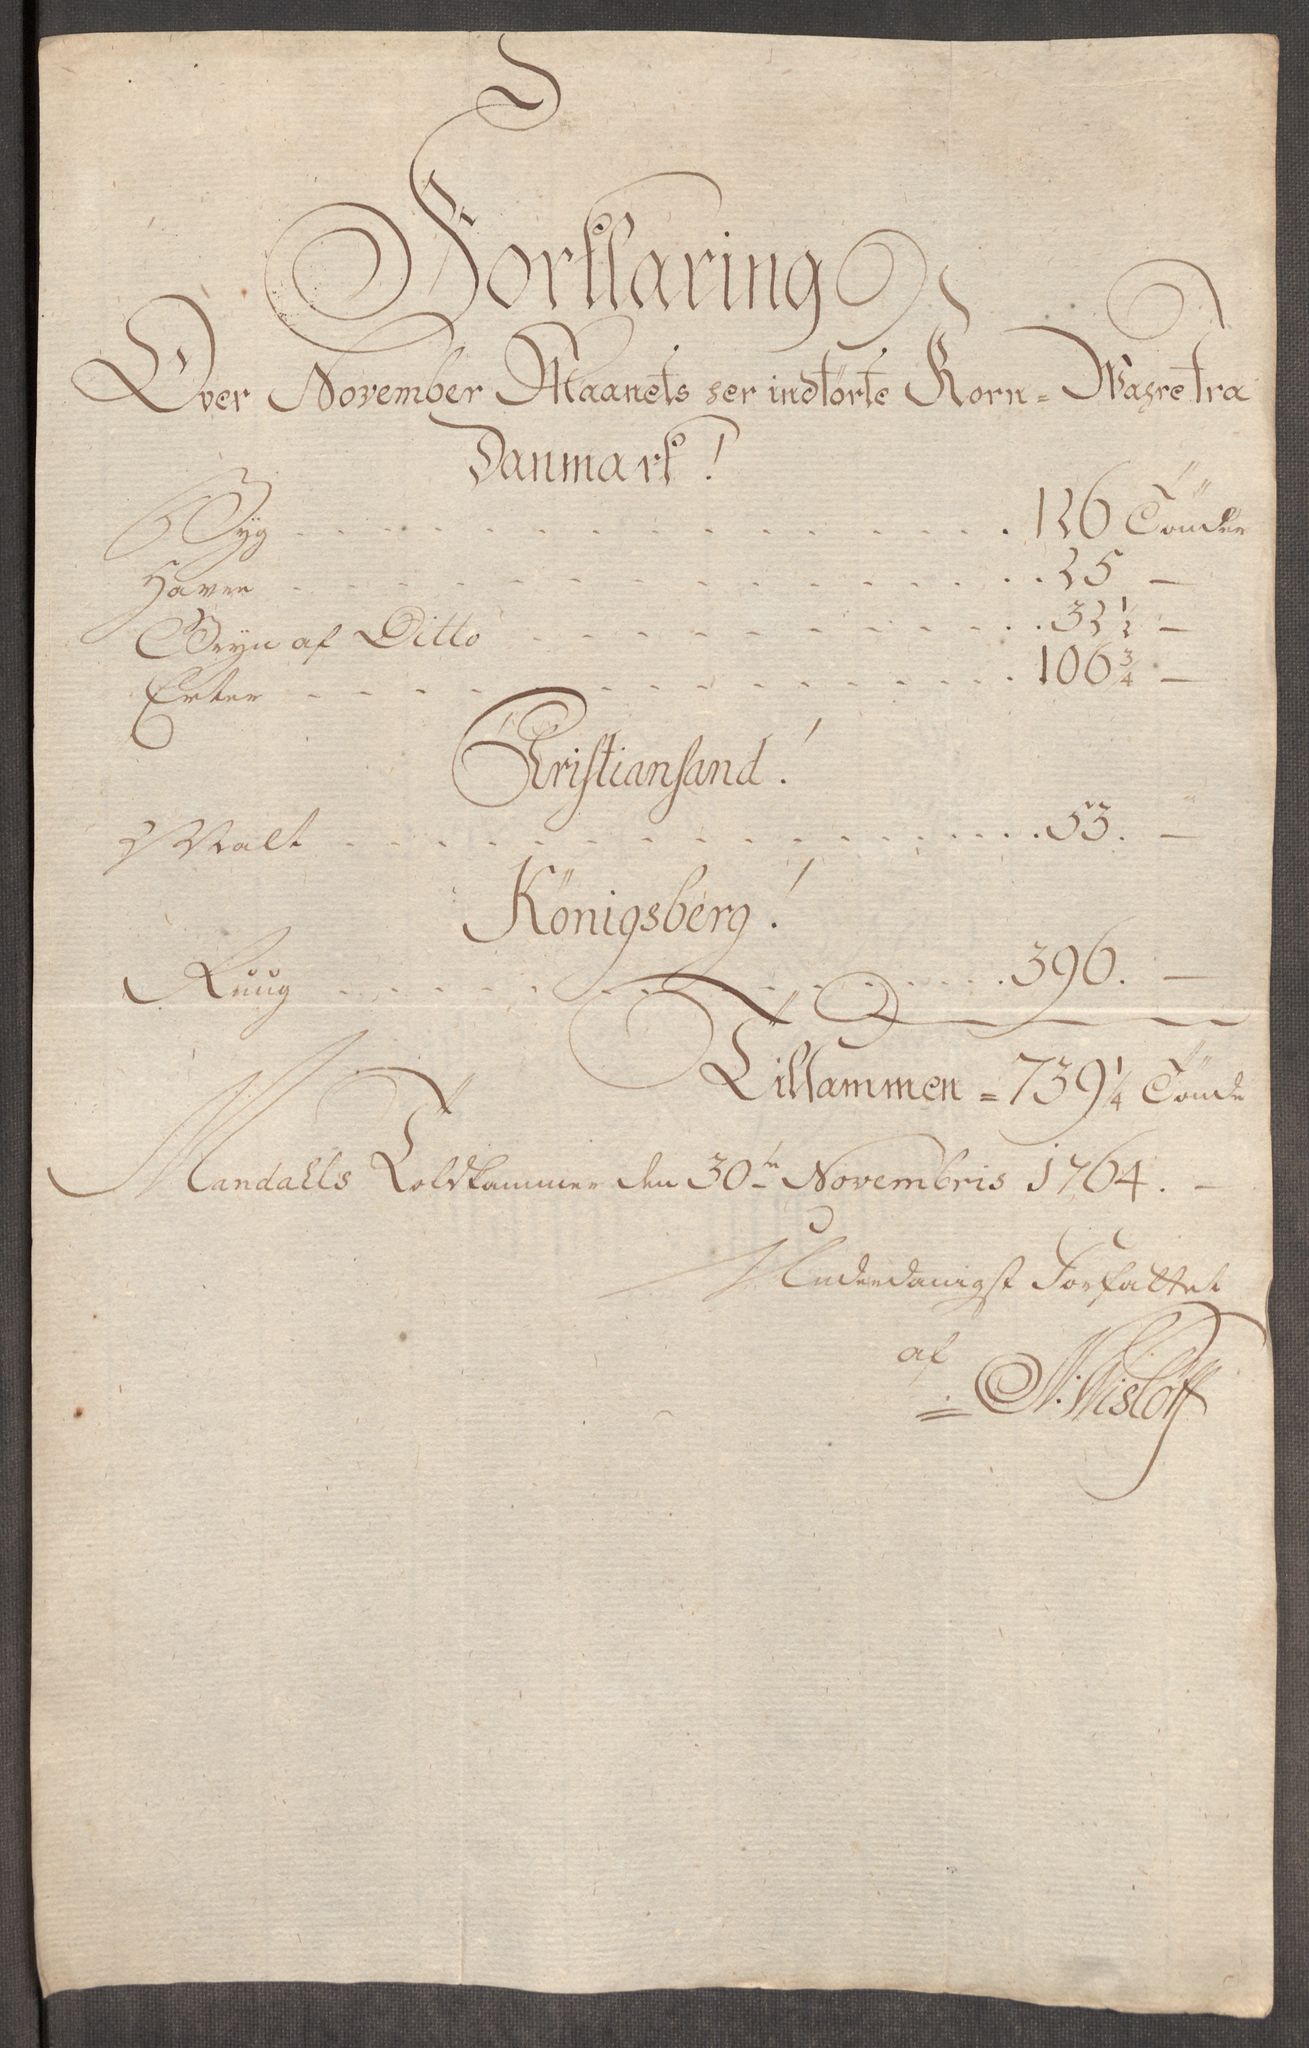 Forklaring
Over November Maanets her indførte Korn-Wahre fra
Danmark!
Byg 126 Tönder
Havre 25 —
Gryn af Ditto 32 1/2 —
Erter 106 3/4 —
Christiansand!
Malt 53. —
Königsberg!
Ruug 396. —
Tilsammen = 739 1/4 Tönde
Mandahls Toldkammer den 30te Novembris 1764. —
Underdanigst Forfattet
af
N: Wislöff